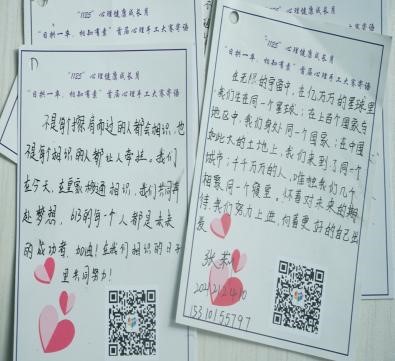 "1125"心理健康成长月
"日拱一卒，相知有素"首届心理手工大赛寄语
不是每个擦肩而过的人都会相识，也
不是每个相识的人都让人牵挂。我们
在今天，在重家相遇相识，我们共同奔
赴梦想，613的每一个人都是未来
的成功者，加油！在我们相识的日子
里共同努力！
"1125"心理健康成长月
"日拱一卒，相知有素"首届心理手工大赛寄语
在无限的宇宙中，在亿万万的星球里
我们生在同一个星球；在上百个国家与
地区中，我们身处同一个国家；在中国
如此大的土地上，我们来到了同一个
城市；千千万万的人，唯独我们几个
相聚同一个寝室。怀着对未来的期
待，我们努力上进，向着更好的自己出
发